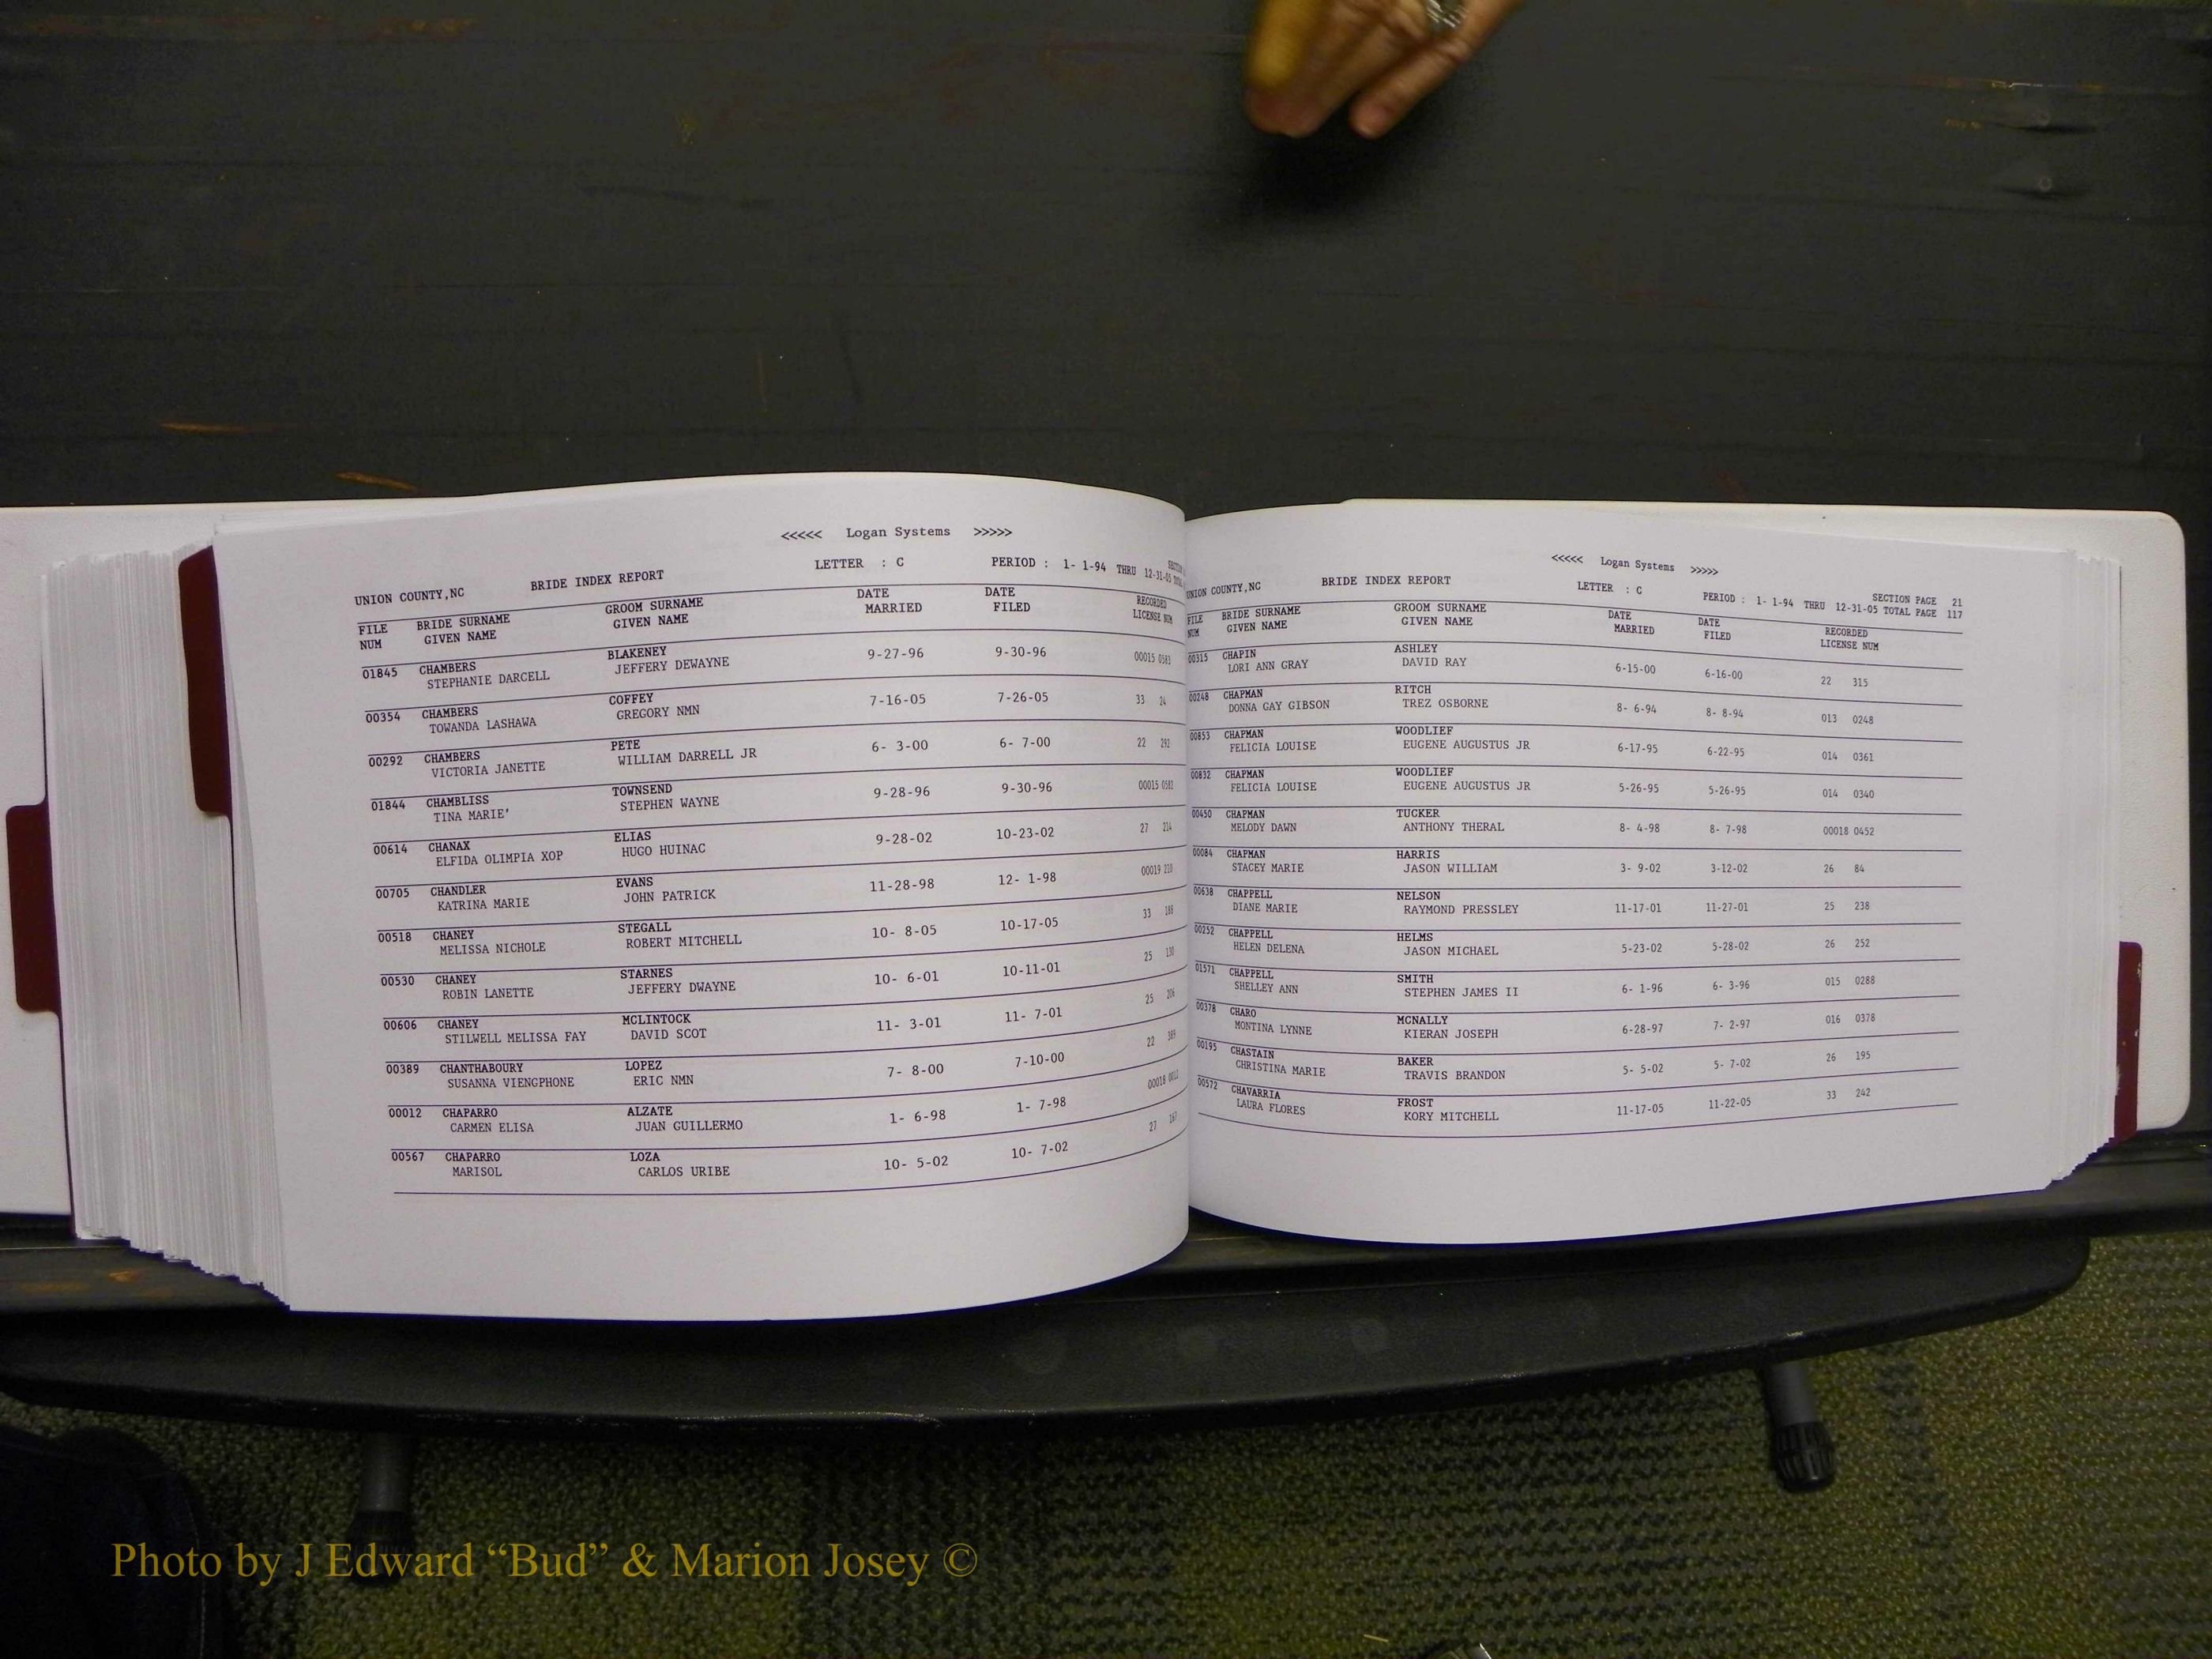 <<<<< Logan Systems >>>>>
UNION COUNTY,NC BRIDE INDEX REPORT LETTER : C PERIOD : 1- 1-94 THRU 12-31-05
FILE NUM BRIDE SURNAME GIVEN NAME GROOM SURNAME GIVEN NAME DATE MARRIED DATE FILED RECORDED LICENSE NUM
01845 CHAMBERS BLAKENEY 9-27-96 9-30-96 00015 0583
STEPHANIE DARCELL JEFFERY DEWAYNE
00354 CHAMBERS COFFEY 7-16-05 7-26-05 33 24
TOWANDA LASHAWA GREGORY NMN
00292 CHAMBERS PETE 6- 3-00 6- 7-00 22 292
VICTORIA JANETTE WILLIAM DARRELL JR
01844 CHAMBLISS TOWNSEND 9-28-96 9-30-96 00015 0582
TINA MARIE' STEPHEN WAYNE
00614 CHANAX ELIAS 9-28-02 10-23-02 27 214
ELFIDA OLIMPIA XOP HUGO HUINAC
00705 CHANDLER EVANS 11-28-98 12- 1-98 00019 210
KATRINA MARIE JOHN PATRICK
00518 CHANEY STEGALL 10- 8-05 10-17-05 33 188
MELISSA NICHOLE ROBERT MITCHELL
00530 CHANEY STARNES 10- 6-01 10-11-01 25 130
ROBIN LANETTE JEFFERY DWAYNE
00606 CHANEY MCLINTOCK 11- 3-01 11- 7-01 25 206
STILWELL MELISSA FAY DAVID SCOT
00389 CHANTHABOURY LOPEZ 7- 8-00 7-10-00 22 389
SUSANNA VIENGPHONE ERIC NMN
00012 CHAPARRO ALZATE 1- 6-98 1- 7-98 00018 0012
CARMEN ELISA JUAN GUILLERMO
00567 CHAPARRO LOZA 10- 5-02 10- 7-02 27 167
MARISOL CARLOS URIBE
<<<<< Logan Systems >>>>>
UNION COUNTY,NC BRIDE INDEX REPORT LETTER : C PERIOD : 1- 1-94 THRU 12-31-05 SECTION PAGE 21 TOTAL PAGE 117
FILE NUM BRIDE SURNAME GIVEN NAME GROOM SURNAME GIVEN NAME DATE MARRIED DATE FILED RECORDED LICENSE NUM
00315 CHAPIN ASHLEY 6-15-00 6-16-00 22 315
LORI ANN GRAY DAVID RAY
00248 CHAPMAN RITCH 8- 6-94 8- 8-94 013 0248
DONNA GAY GIBSON TREZ OSBORNE
00853 CHAPMAN WOODLIEF 6-17-95 6-22-95 014 0361
FELICIA LOUISE EUGENE AUGUSTUS JR
00832 CHAPMAN WOODLIEF 5-26-95 5-26-95 014 0340
FELICIA LOUISE EUGENE AUGUSTUS JR
00450 CHAPMAN TUCKER 8- 4-98 8- 7-98 00018 0452
MELODY DAWN ANTHONY THERAL
00084 CHAPMAN HARRIS 3- 9-02 3-12-02 26 84
STACEY MARIE JASON WILLIAM
00638 CHAPPELL NELSON 11-17-01 11-27-01 25 238
DIANE MARIE RAYMOND PRESSLEY
00252 CHAPPELL HELMS 5-23-02 5-28-02 26 252
HELEN DELENA JASON MICHAEL
01571 CHAPPELL SMITH 6- 1-96 6- 3-96 015 0288
SHELLEY ANN STEPHEN JAMES II
00378 CHARO MCNALLY 6-28-97 7- 2-97 016 0378
MONTINA LYNNE KIERAN JOSEPH
00195 CHASTAIN BAKER 5- 5-02 5- 7-02 26 195
CHRISTINA MARIE TRAVIS BRANDON
00572 CHAVARRIA FROST 11-17-05 11-22-05 33 242
LAURA FLORES KORY MITCHELL
Photo by J Edward “Bud” & Marion Josey ©